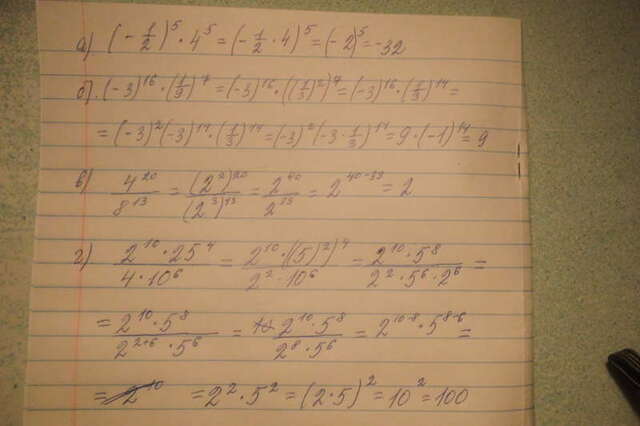 а) (-1/2)^5 · 4^5 = (-1/2 · 4)^5 = (-2)^5 = -32
б) (-3)^16 · (1/9)^7 = (-3)^16 · ((1/3)^2)^7 = (-3)^16 · (1/3)^14 =
= (-3)^2 (-3)^14 · (1/3)^14 = (-3)^2 (-3 · 1/3)^14 = 9 · (-1)^14 = 9
в) 4^20/8^13 = (2^2)^20/(2^3)^13 = 2^40/2^39 = 2^40-39 = 2
г) 2^10 · 25^4/4 · 10^6 = 2^10 · ((5)^2)^4/2^2 · 10^6 = 2^10 · 5^8/2^2 · 5^6 · 2^6 =
= 2^10 · 5^8/2^2+6 · 5^6 = 2^10 · 5^8/2^8 · 5^6 = 2^10-8 · 5^8-6 =
= 2^2 · 5^2 = (2 · 5)^2 = 10^2 = 100